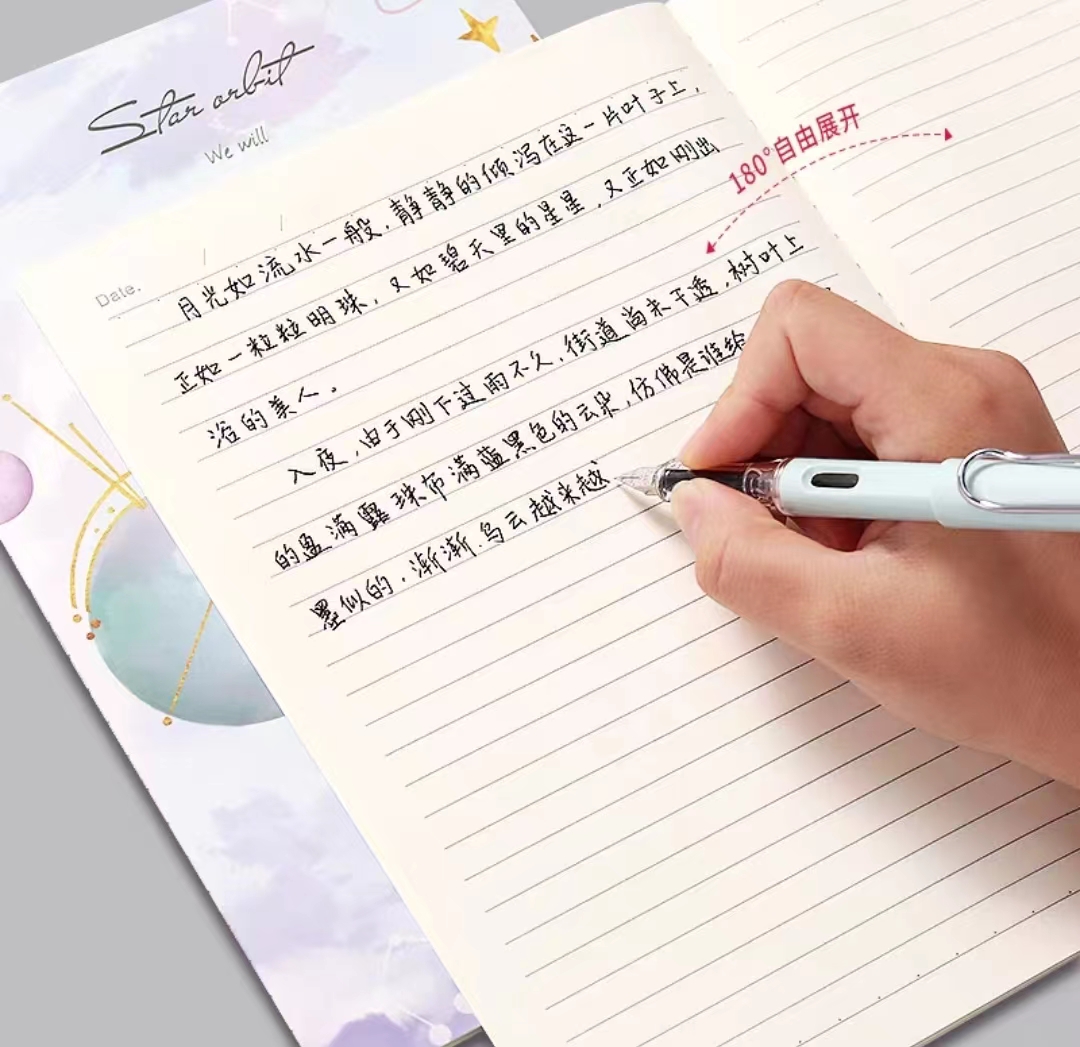 Star orbit
We will
Date.
180°自由展开
月光如流水一般,静静的倾泻在这一片叶子上,
正如一粒粒明珠,又如碧天里的星星,又正如刚出
浴的美人。
入夜,由于刚下过雨不久,街道尚未干透,树叶上
的盈满露珠布满蓝黑色的云朵,仿佛是谁给
墨似的,渐渐乌云越来越